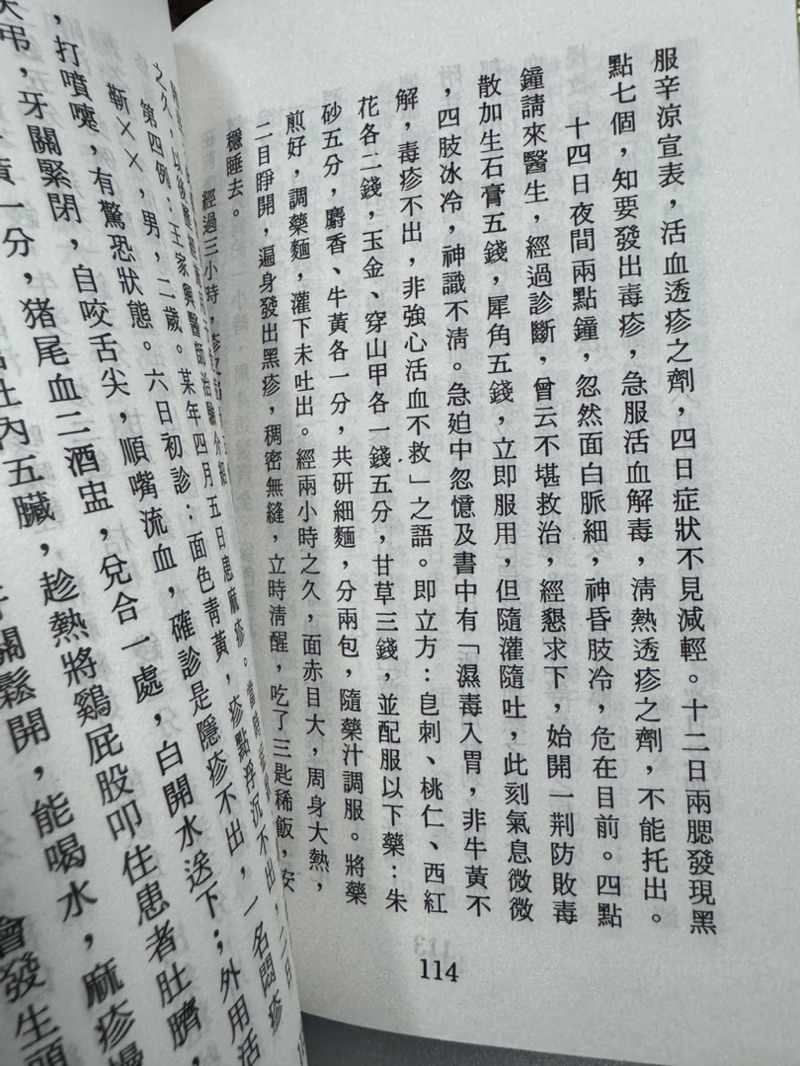 服辛涼宣表，活血透疹之劑，四日症狀不見減輕。十二日兩腮發現黑
點七個，知要發出毒疹，急服活血解毒，清熱透疹之劑，不能托出。
十四日夜間兩點鐘，忽然面白脈細，神昏肢冷，危在目前。四點
鐘請來醫生，經過診斷，曾云不堪救治，經懇求下，始開一荆防敗毒
散加生石膏五錢，犀角五錢，立即服用，但隨灌隨吐，此刻氣息微微
，四肢冰冷，神識不清。急廹中忽憶及書中有「濕毒入胃，非牛黃不
解，毒疹不出，非強心活血不救」之語。即立方：皂刺、桃仁、西紅
花各二錢，玉金、穿山甲各一錢五分，甘草三錢，並配服以下藥：朱
砂五分，麝香、牛黃各一分，共研細麵，分兩包，隨藥汁調服。將藥
煎好，調藥麵，灌下未吐出。經兩小時之久，面赤目大，周身大熱，
二目睜開，遍身發出黑疹，稠密無縫，立時清醒，吃了三匙稀飯，安
穩睡去。
經過三小時，疹
之久，以後
第四例：王家興醫師治驗
靳××，男，二歲。某年四月五日患麻疹。當時
，有驚恐狀態。六日初診：面色青黃，疹點浮沉不出，二日
，打噴嚏，自咬舌尖，順嘴流血，確診是隱疹不出，一名悶疹
，牙關緊閉，
一分，猪尾血二酒盅，兌合一處，白開水送下；外用活
內五臟，趁熱將鷄屁股叩住患者肚臍，
關鬆開，能喝水，麻疹
會發生頭
114